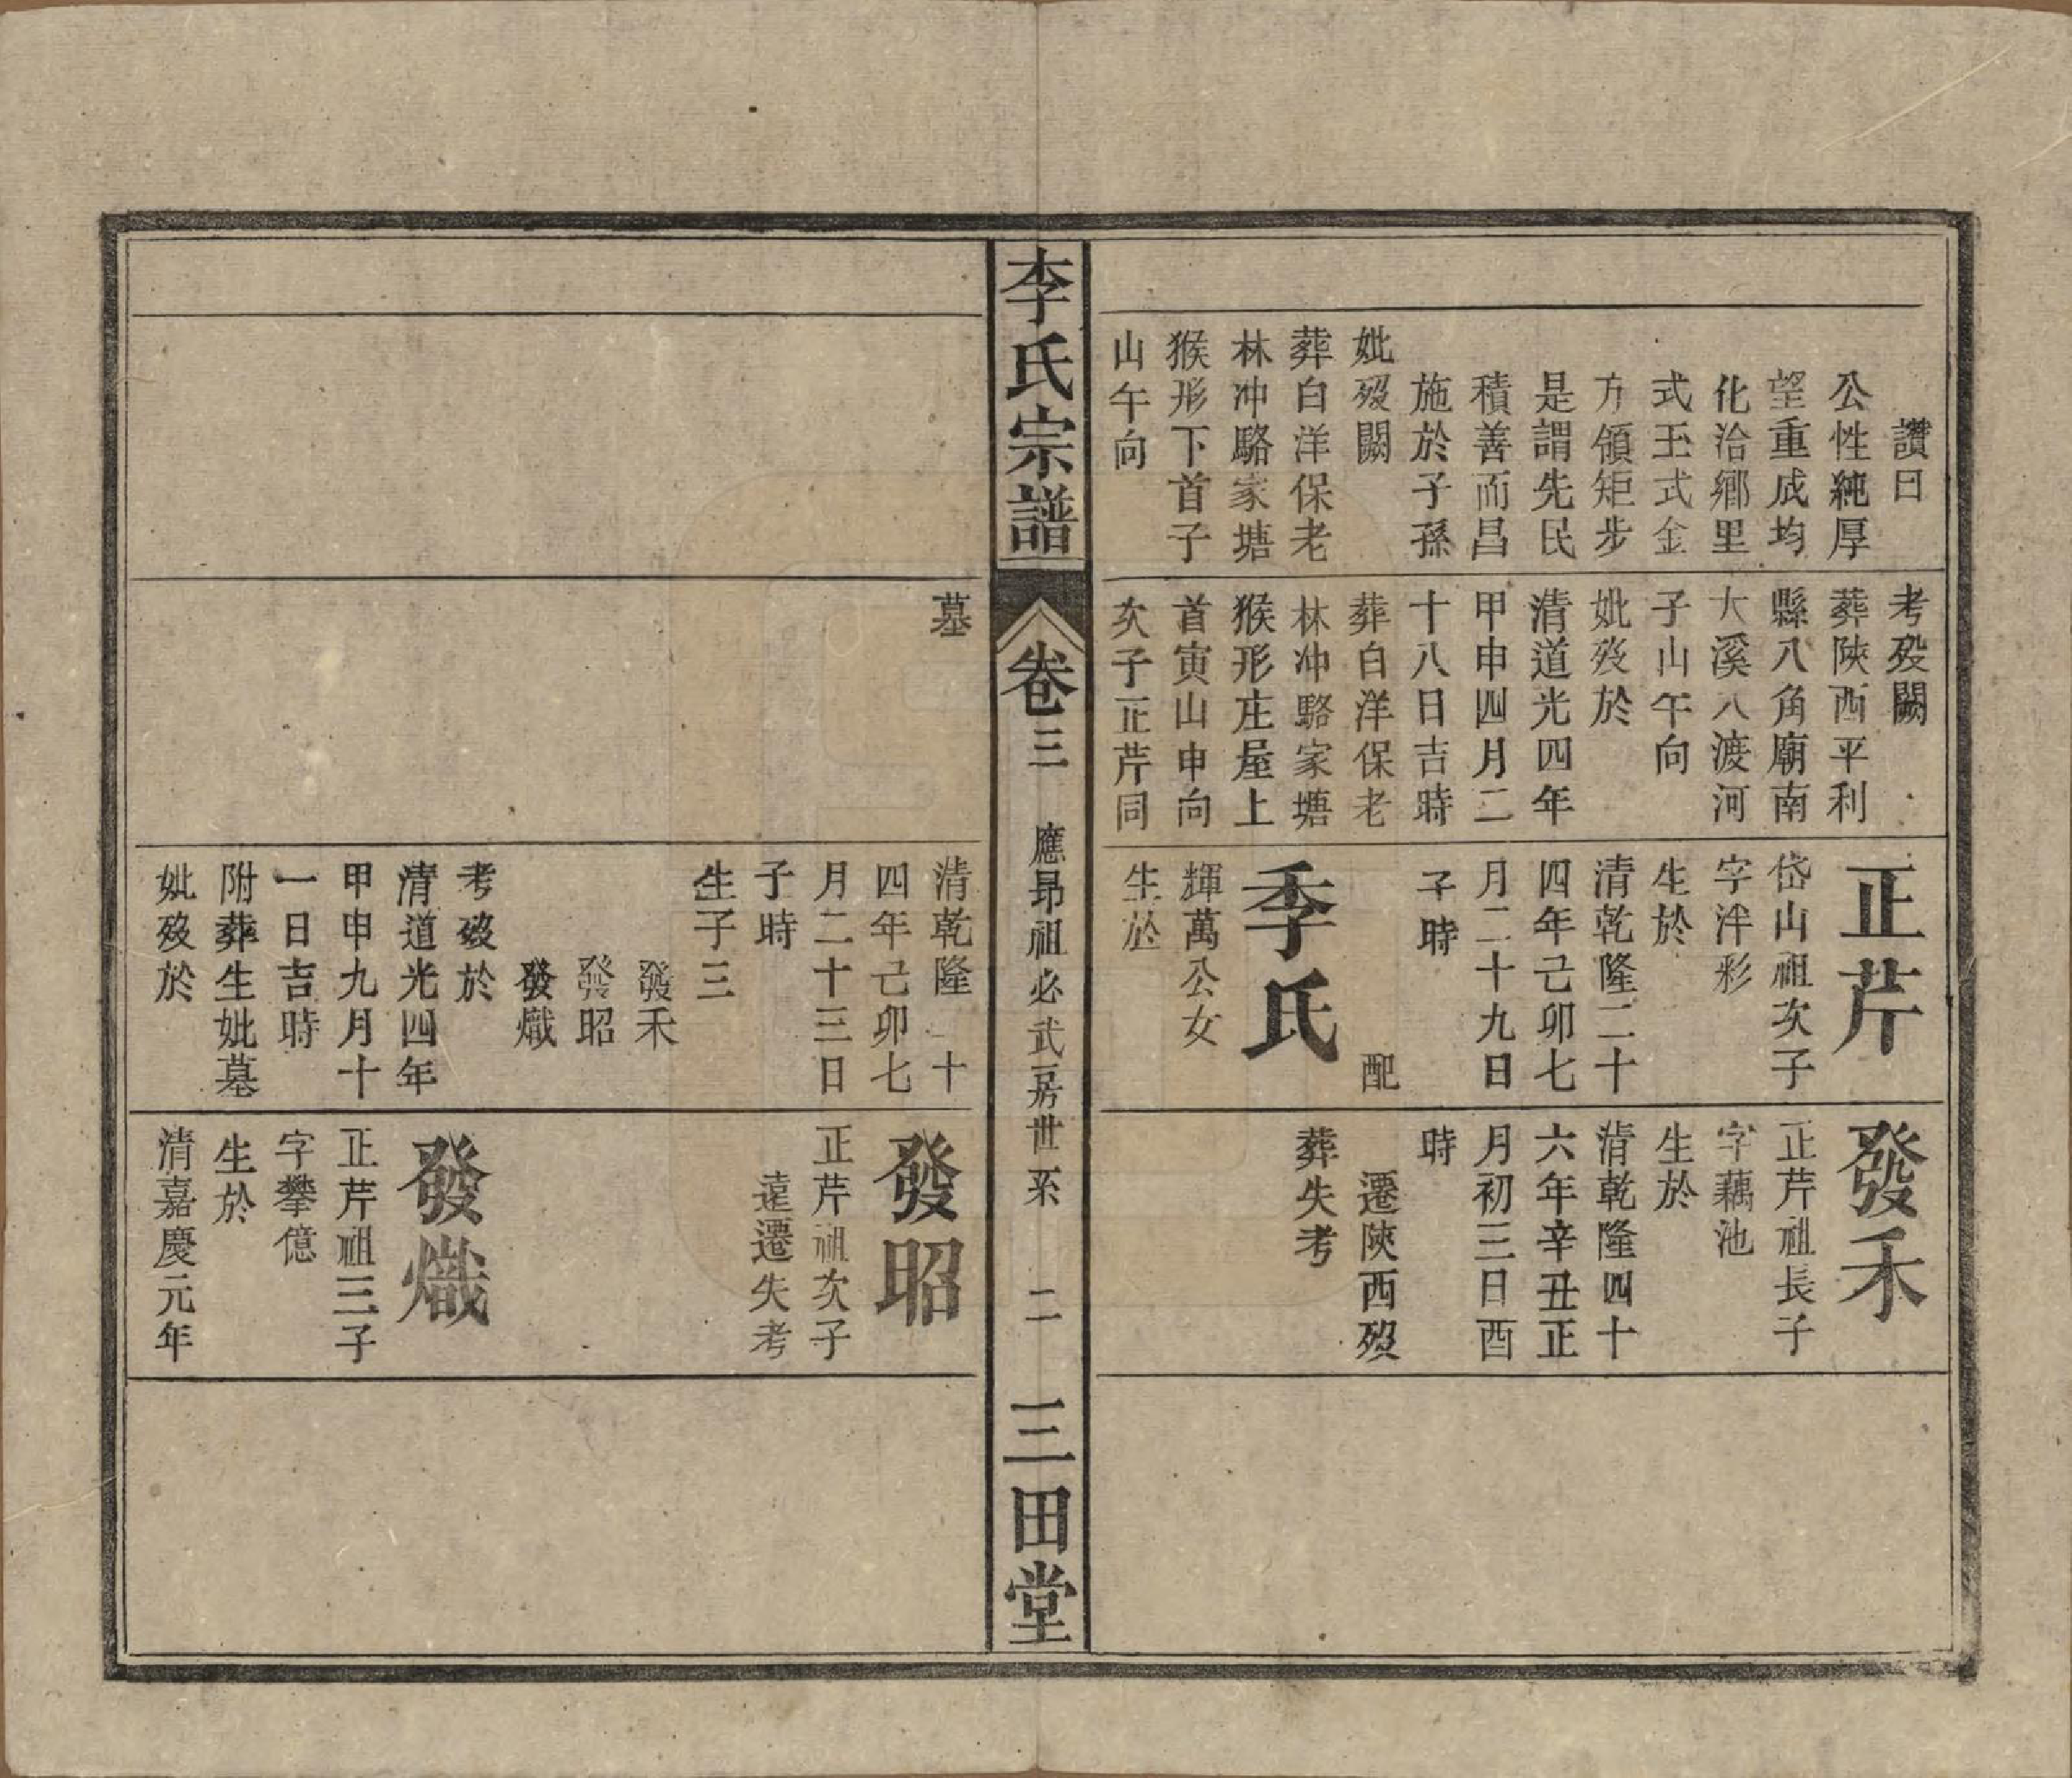 讚曰
公性純厚
望重成均
化洽鄉里
式玉式金
方領矩步
是謂先民
積善而昌
施於子孫
妣歿闕
葬白洋保老
林冲駱家塘
猴形下首子
山午向
考歿闕
葬陝西平利
縣八角廟南
大溪八渡河
子山午向
妣歿於
清道光四年
甲申四月二
十八日吉時
葬白洋保老
林冲駱家塘
猴形庄屋上
首寅山申向
次子正芹同
正芹
岱山祖次子
字泮彩
生於
清乾隆二十
四年己卯七
月二十九日
子時
配
季氏
輝萬公女
生於
發禾
正芹祖長子
字藕池
生於
清乾隆四十
六年辛丑正
月初三日酉
時
遷陝西歿
葬失考
李氏宗譜
卷三
應昂祖必武房世系
二
三田堂
墓
清乾隆二十
四年己卯七
月二十三日
子時
生子三
發禾
發昭
發熾
考歿於
清道光四年
甲申九月十
一日吉時
附葬生妣墓
妣歿於
發昭
正芹祖次子
遠遷失考
發熾
正芹祖三子
字攀億
生於
清嘉慶元年